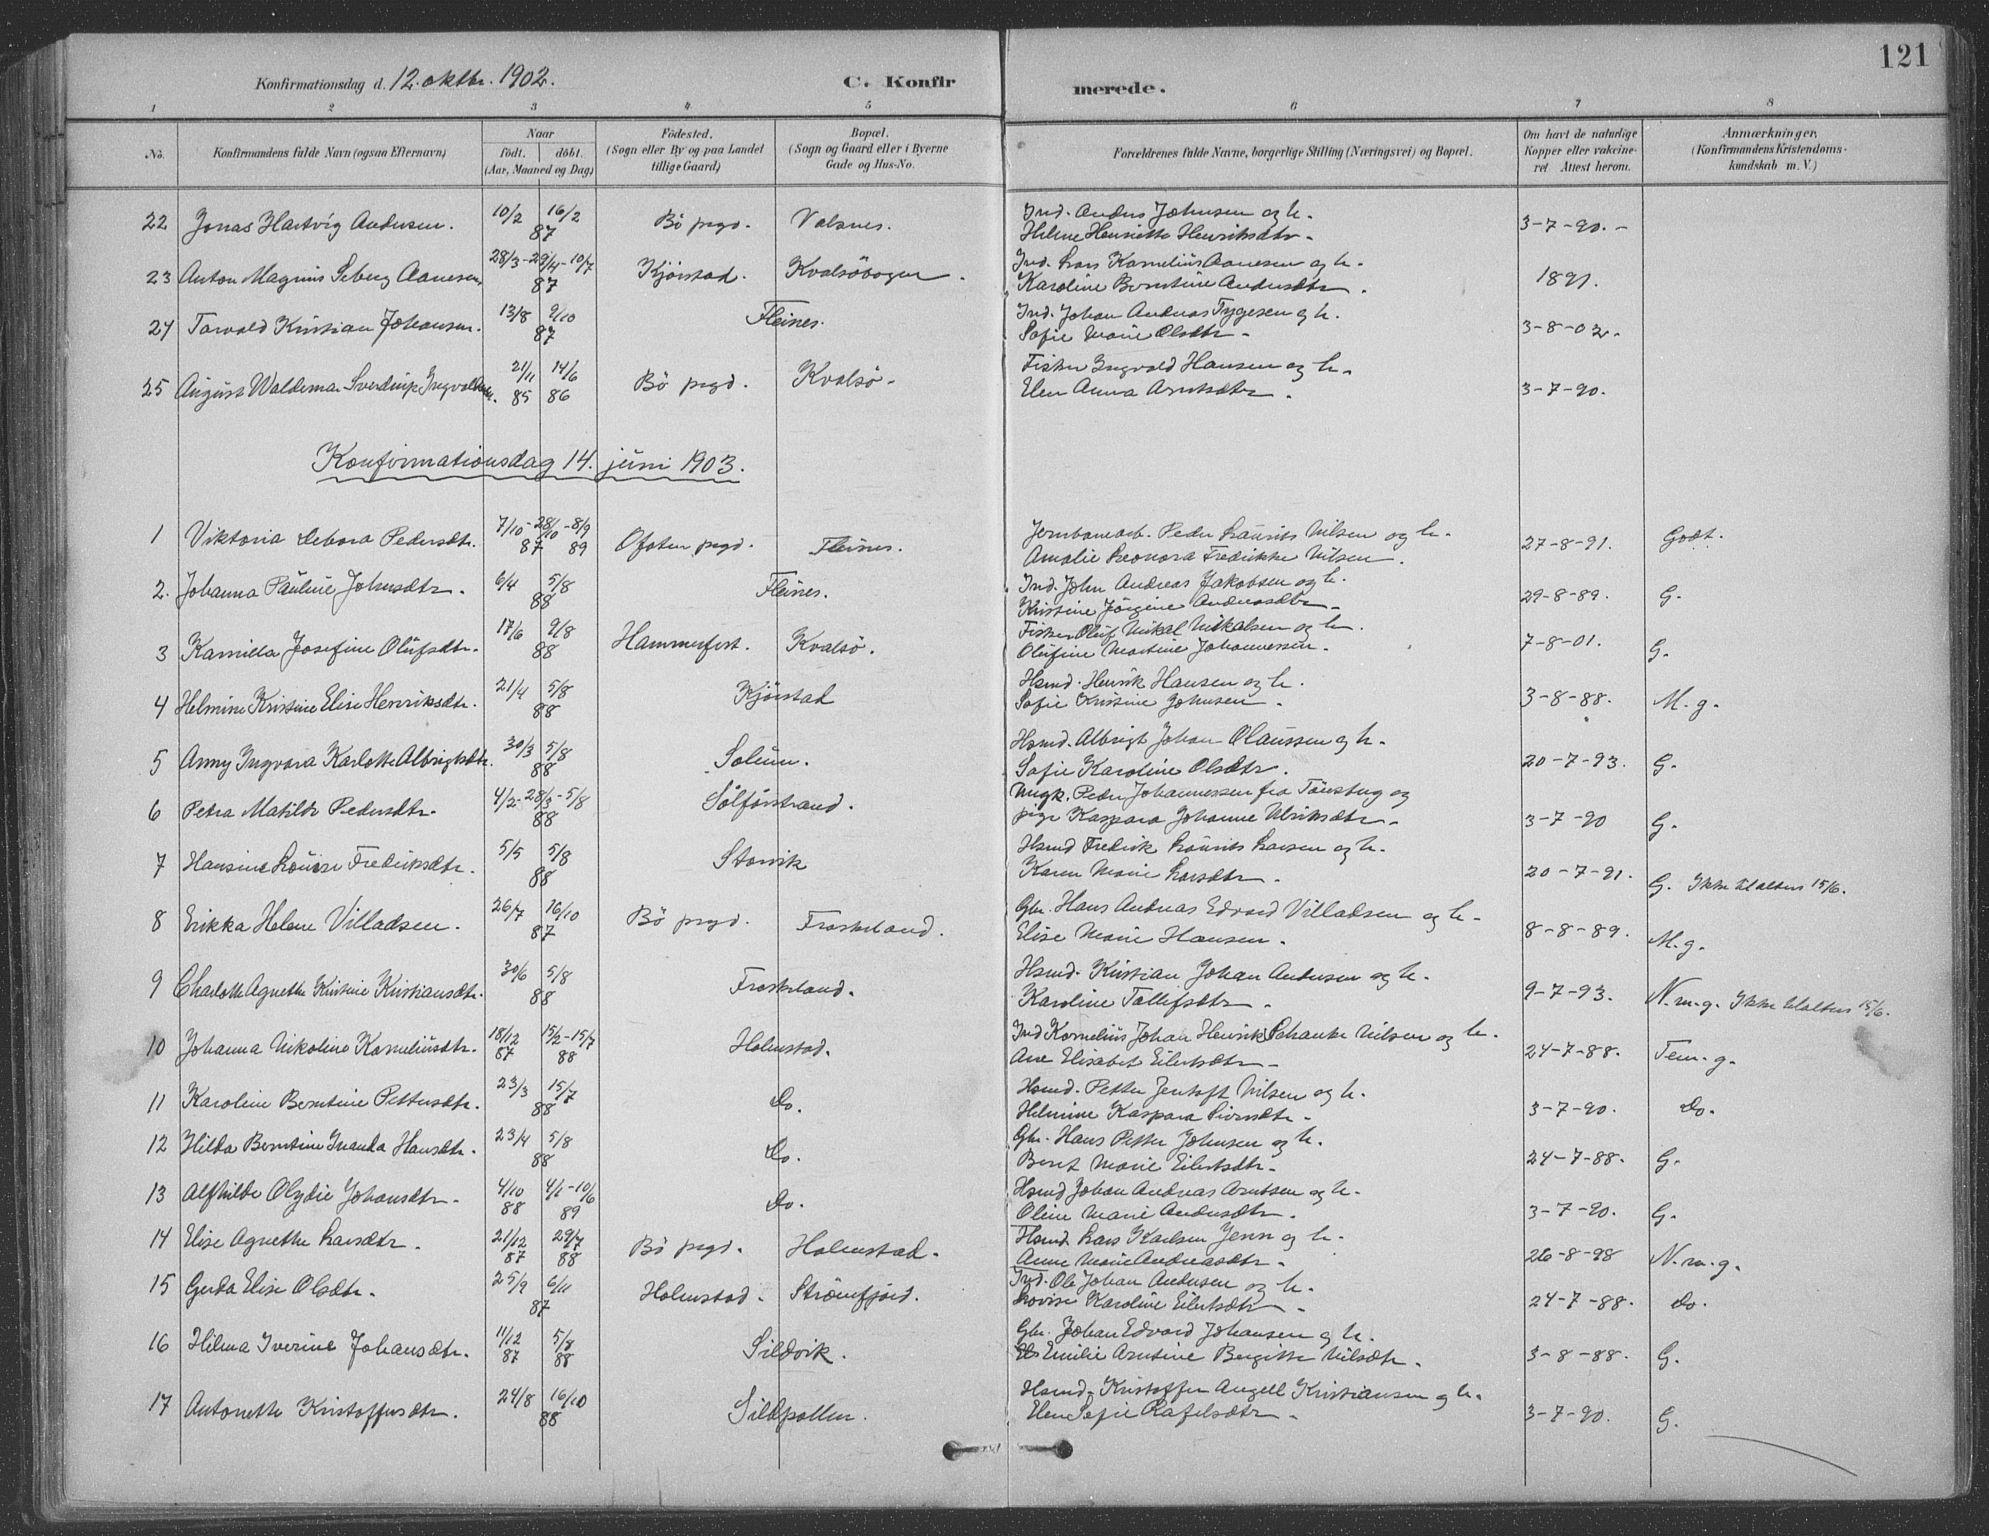 121
Konfirmationsdag d. 12. oktbr. 1902. C. Konfirmerede.
1 2 3 4 5 6 7 8
No. Konfirmandens fulde Navn (ogsaa Efternavn) Naar födt. döbt. (Aar, Maaned og Dag) Födested. (Sogn eller By og paa Landet tillige Gaard) Bopæl. (Sogn og Gaard eller i Byerne Gade og Hus-No. Forældrenes fulde Navne, borgerlige Stilling (Næringsvei) og Bopæl. Om havt de naturlige Kopper eller vakcineret Attest herom. Anmærkninger. (Konfirmandens Kristendomskundskab m. V.)
22 Jonas Hartvig Andersen. 10/2 16/2 87 Bö prgd. Valsnes. Ind. Anders Johnsen og h. Helene Henriette Henriksdtr. 3-7-90.
23 Anton Magnus Seberg Aanesen. 28/3 - 29/4 - 10/7 87 Kjörstad. Kvalsöbogen. Ind. Lars Kornelius Aanesen og h. Karoline Berntine Andersdtr. 1891.
24 Torvald Kristian Johansen. 13/8 9/10 87 Fleines. Ind. Johan Andreas Tygesen og h. Sofie Marie Olsdtr. 3-8-02.
25 August Waldemar Sverdrup Ingvaldsen. 21/11 85 14/6 86 Bö prgd. Kvalsö. Fisker Ingvald Hansen og h. Elen Anna Arntsdtr. 3-7-90.
Konfirmationsdag 14. juni 1903.
1 Viktoria Debora Pedersdtr. 7/10 - 28/10 - 8/9 87 89 Ofoten prgd. Fleines. Jernbanearb. Peder Laurits Nilsen og h. Amalie Leonora Fredrikke Nilsen. 27-8-91. Godt.
2. Johanna Pauline Johnsdtr. 6/4 5/8 88 Fleines. Ind. John Andreas Jakobsen og h. Kristine Jörgine Andreasdtr. 29-8-89. G.
3 Kamilla Josefine Olufsdtr. 17/6 9/8 88 Hammerfest. Kvalsö. Fisker Oluf Mikal Mikalsen og h. Olufine Martine Johannessen. 7-8-01. G.
4 Helmine Kristine Elise Henriksdtr. 21/4 5/8 88 Kjörstad Hsmd. Henrik Hansen og h. Sofie Kristine Johnsen. 3-8-88. M.g.
5 Anny Ingvara Karlotte Albrigtsdtr. 30/3 5/8 88 Soleim. Hsmd. Albrigt Johan Olaussen og h. Sofie Karoline Olsdtr. 20-7-93. G.
6 Petra Matilde Pedersdtr. 4/2 - 28/3 - 5/8 88 Sölförstrand. Ungk. Peder Johannessen fra Tönsberg og pige Kaspara Johanne Ulriksdtr. 3-7-90 G.
7 Hansine Lovise Fredriksdtr. 5/5 5/8 88 Storvik Hsmd Fredrik Laurits Larsen og h. Karen Marie Larsdtr. 20-7-91. G. Ikke tilalters 15/6.
8 Erikka Helene Villadsen. 26/7 16/10 87 Bö prgd. Froskeland. Gbr. Hans Andreas Edvard Villadsen og h. Elise Marie Hansen. 8-8-89. M.g.
9 Charlotte Agnethe Kristine Kristiansdtr. 30/6 5/8 88 Froskeland. Hsmd. Kristian Johan Andersen og h. Karoline Tollefsdtr. 9-7-93. N.m.g. Ikke tilalters 15/6.
10 Johanna Nikoline Korneliusdtr. 18/12 87 15/2 - 15/7 88 Holmstad. Ind Kornelius Johan Henrik Schanke Nilsen og h. Ane Elisabet Eilertsdtr. 24-7-88. Tem. g.
11 Karoline Berntine Pettersdtr. 23/3 15/7 88 Do. Hsmd. Petter Jentoft Nilsen og h. Helmine Kaspara Siversdtr. 3-7-90. Do.
12 Hilda Berntine Inanda Hansdtr. 23/4 5/8 88 Do. Gbr. Hans Petter Johnsen og h. Beret Marie Eilertsdtr. 24-7-88. G.
13 Alfhilde Olydie Johansdtr. 4/10 88 4/1 - 10/6 89 Do. Hsmd Johan Andreas Arntsen og h. Oline Marie Andersdtr. 3-7-90. G.
14 Elise Agnethe Larsdtr. 21/12 87 29/7 88 Bö prgd. Holmstad. Hsmd. Lars Karlsen Jenn og h. Anne Marie Andreasdtr. 26-8-98 N.m.g.
15 Gerda Elise Olsdtr. 25/9 6/11 87 Holmstad. Strömfjord. Ind. Ole Johan Andersen og h. Lovise Karoline Eilertsdtr. 24-7-88. Do.
16 Hilma Iverine Johansdtr. 11/12 87 5/8 88 Sildvik. Gbr. Johan Edvard Johansen og h. Emilie Arntine Bergitte Nilsdtr. 3-8-88. G.
17 Antonette Kristoffersdtr. 24/8 16/10 88 Sildpollen. Hsmd. Kristoffer Angell Kristiansen og h. Elen Sofie Rafelsdtr. 3-7-90. G.